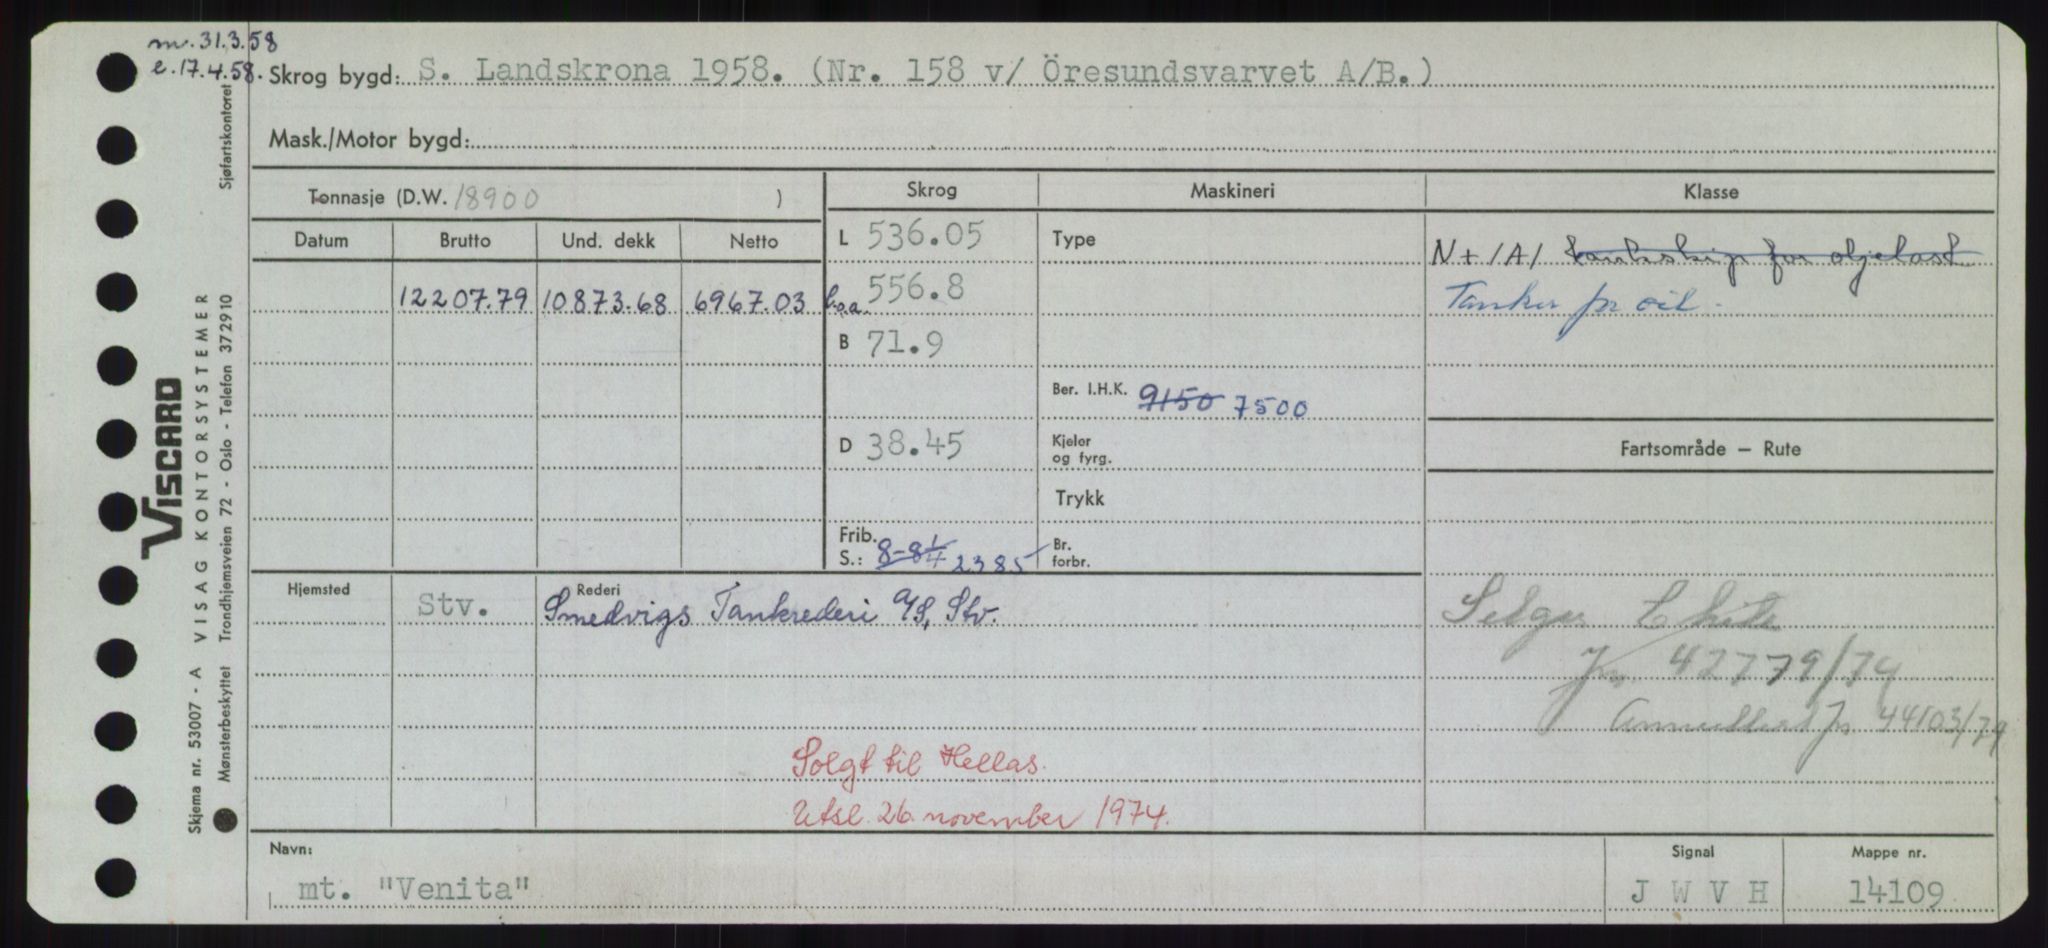 m. 31.3.58
e. 17.4.58.
Skrog bygd: S. Landskrona 1958. (Nr. 158 v/ Öresundsvarvet A/B.)
Mask./Motor bygd:
Tonnasje (D.W. 18900 )
Skrog Maskineri Klasse
Datum Brutto Und. dekk Netto
L 536.05 Type N + 1A1 tankskip for oljelast
12207.79 10873.68 6967.03 l.o.a. 556.8 Tanker for oil.
B 71.9
Ber. I.H.K. 9150 7500
D 38.45 Kjeler og fyrg. Fartsområde — Rute
Trykk
Frib. S.: 8-8¼ 2385 Br. forbr.
Hjemsted Stv. Rederi
Smedvigs Tankrederi A/S, Stv.
Selger
Jnr. 42779/74
Annullert Jr. 44103/74
Solgt til Hellas.
Utsl. 26. november 1974.
Navn: Signal Mappe nr.
mt. "Venita" J W V H 14109
VISCARD
VISAG KONTORSYSTEMER
Skjema nr. 53007 - A
Mønsterbeskyttet Trondhjemsveien 72 - Oslo - Telefon 372910 Sjøfartskontoret